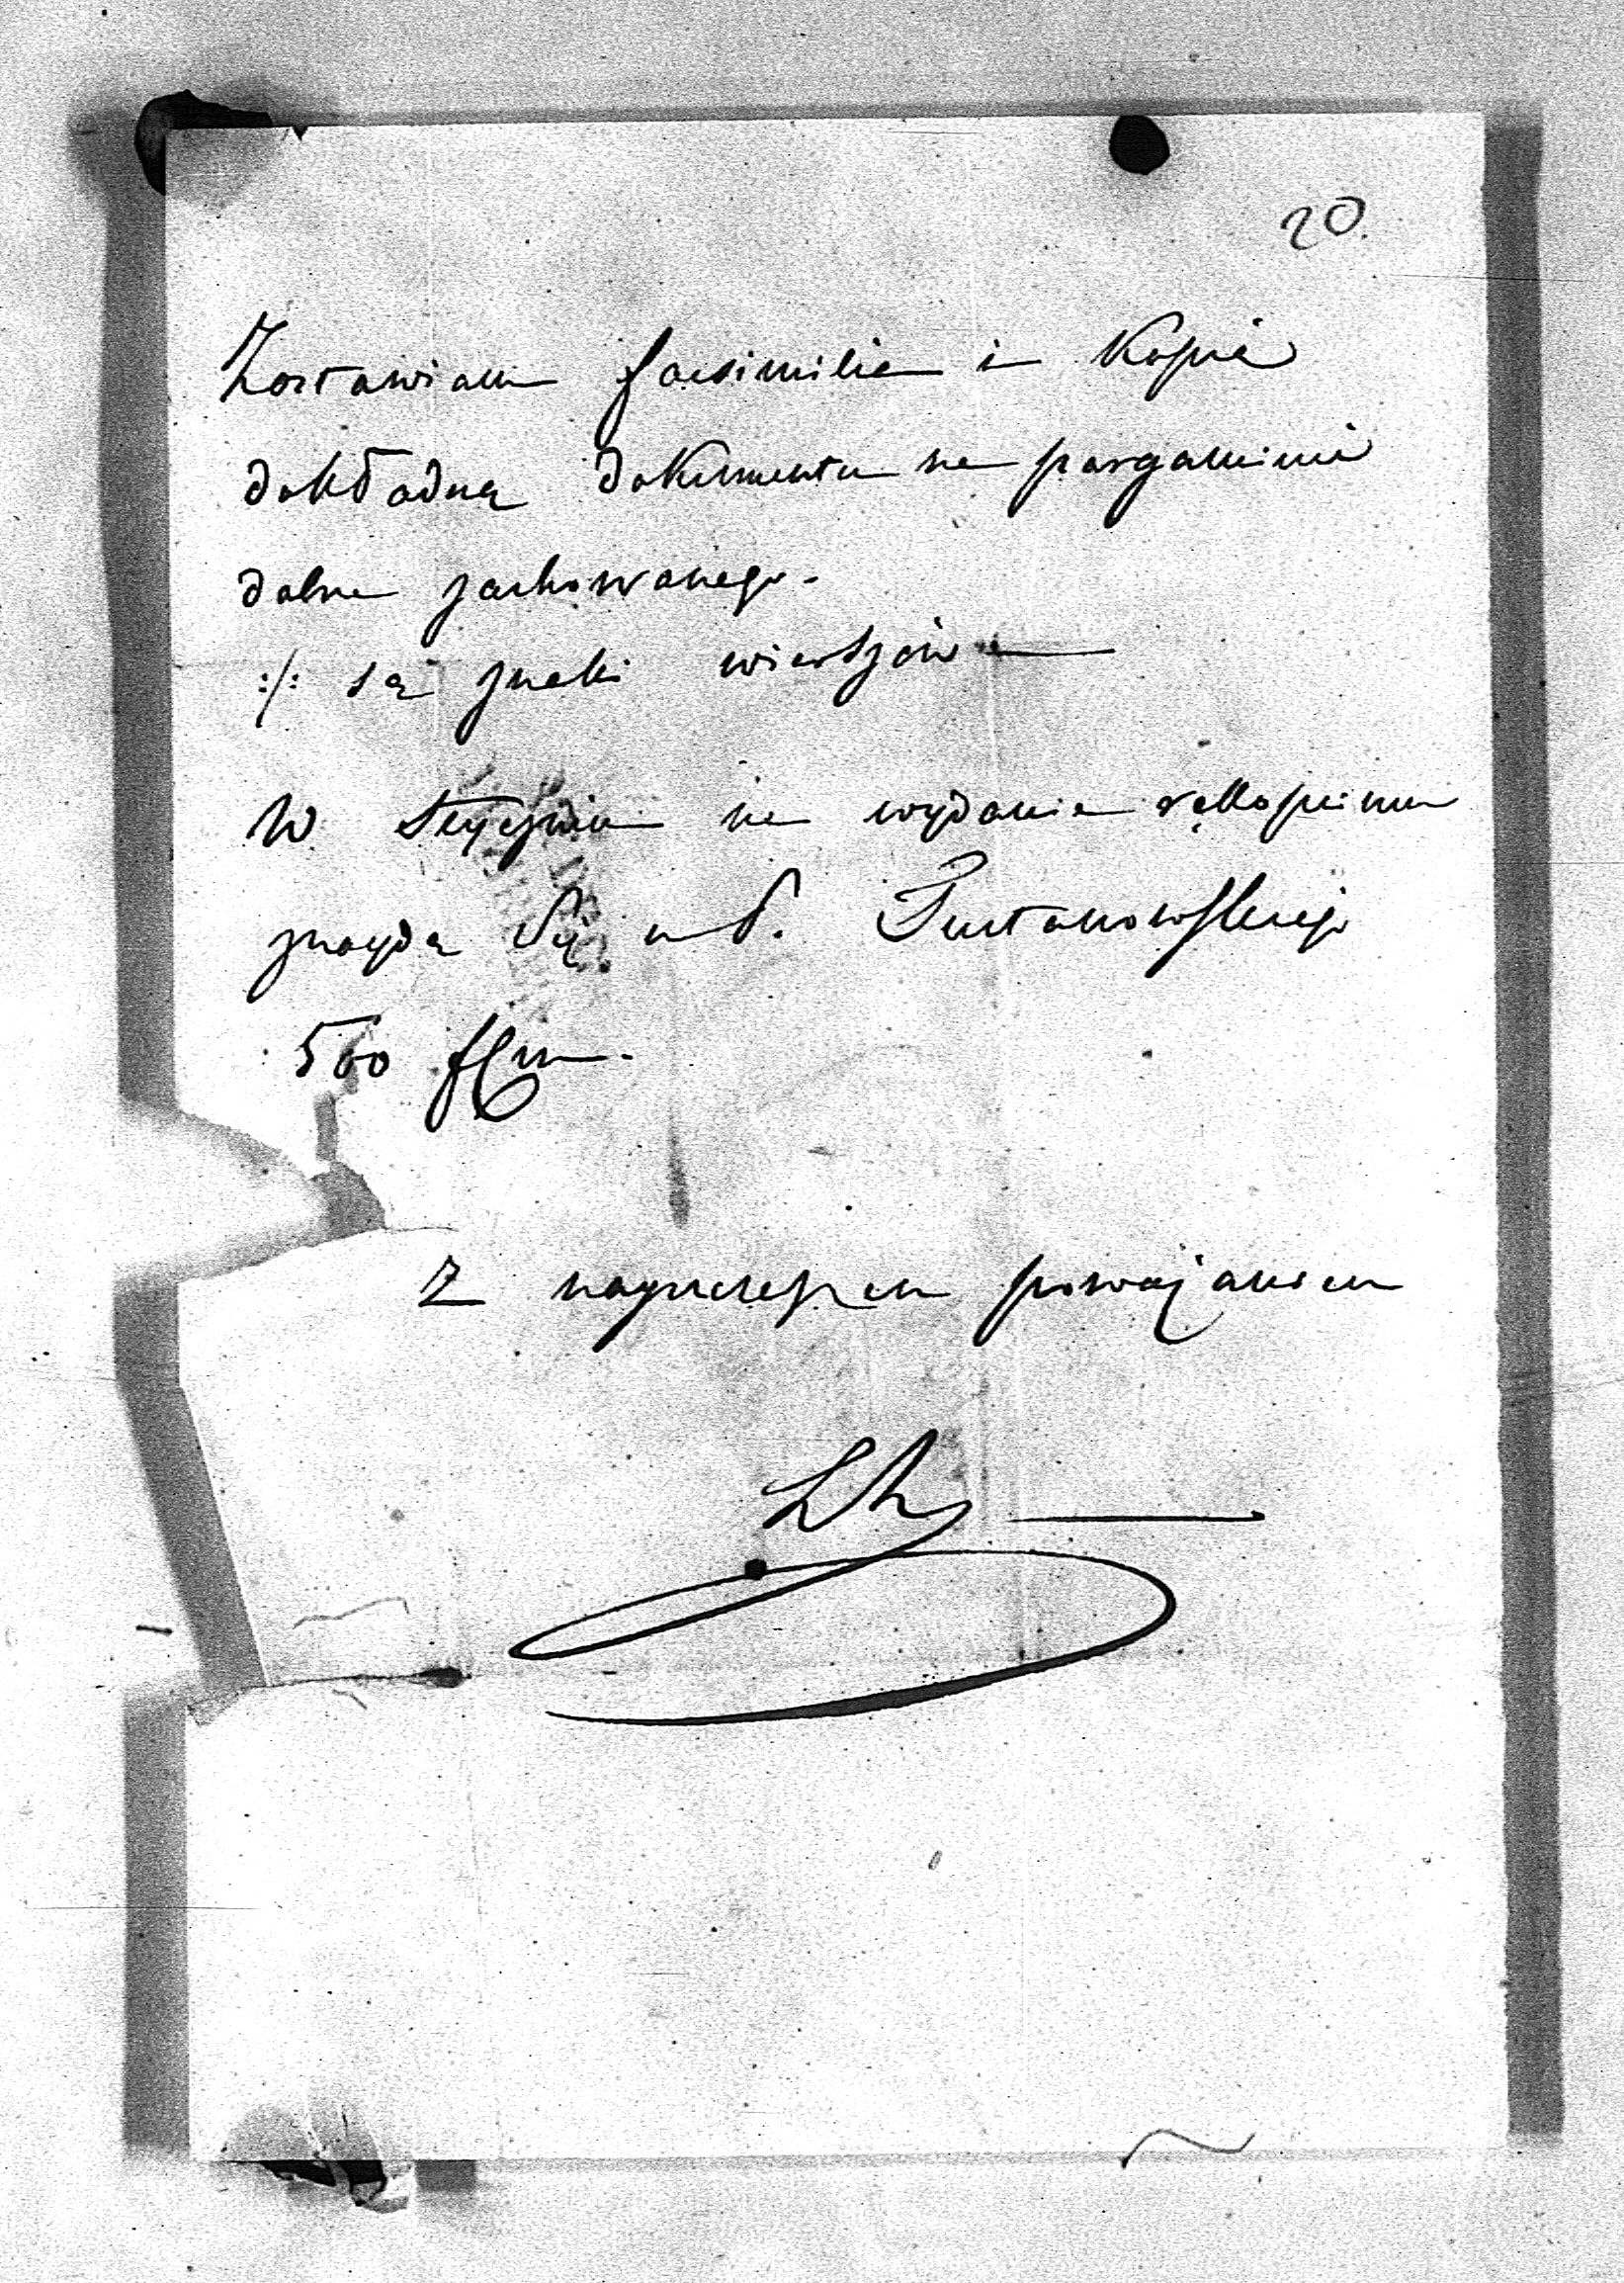 20.
Zostawiam facsimilia i kopią
dokładną dokumentu na pargaminie
dobrze zachowanego.
:/: są znaki wierszów
W Styczniu na wydanie rękopismu
znaydą się u P.
500 f
Z naygłębszem poważaniem